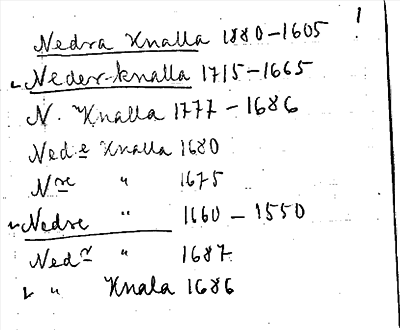 Nedra Knalla 1880-1605
Neder-knalla 1715-1665
N. Knalla 1777-1686
Nede Knalla 1680
Nre " 1675
Nedre " 1660-1550
Nedr " 1687
" Knala 1686